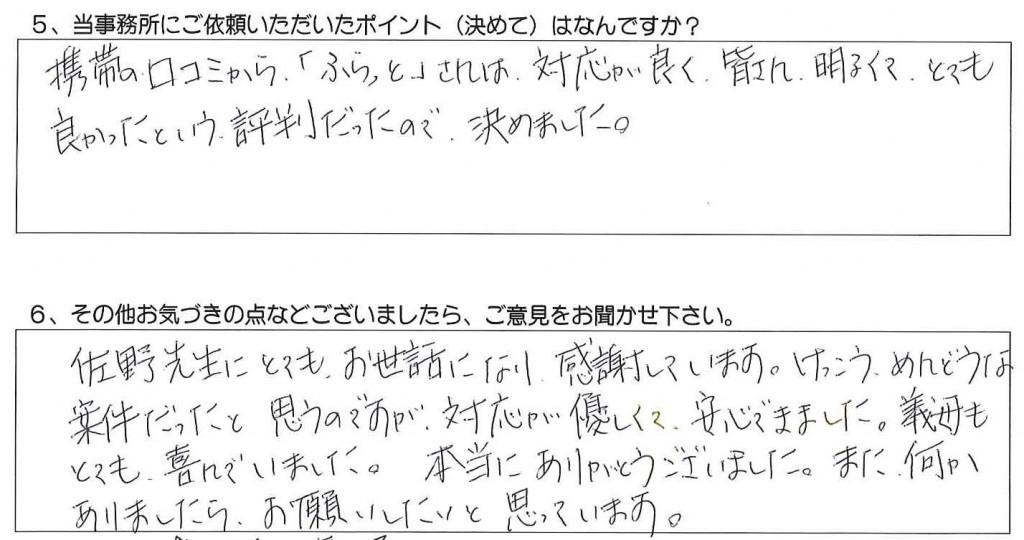 5、当事務所にご依頼いただいたポイント（決めて）はなんですか？
携帯の口コミから、「ふらっと」さんは、対応が良く、皆さん、明るくて、とても
良かったという、評判だったので、決めました。
6、その他お気づきの点などございましたら、ご意見をお聞かせ下さい。
佐野先生にとても、お世話になり、感謝しています。けっこう、めんどうな
案件だったと思うのですが、対応が優しくて、安心できました。義母も
とても、喜んでいました。本当にありがとうございました。また、何か
ありましたら、お願いしたいと思っています。